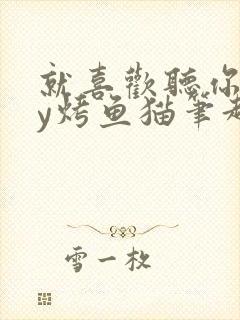 就喜歡聽你
y烤鱼猫筆趣
雪一枚